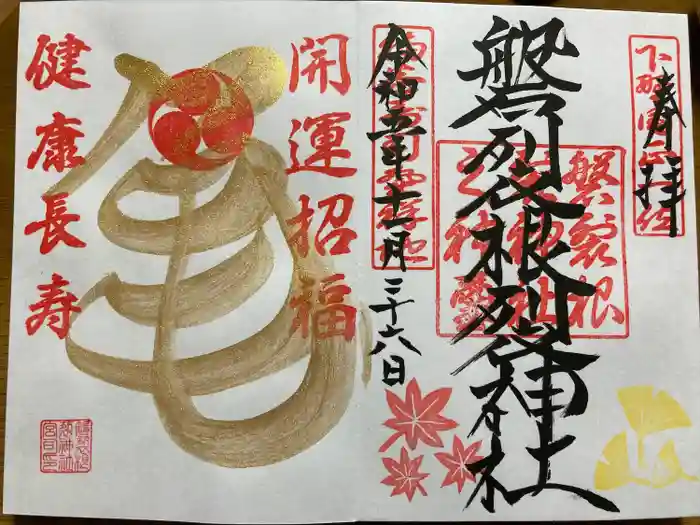 奉拝
磐裂根裂神社
磐裂根
裂神社
之神璽
令和五年十一月二十六日
開運招福
亀
健康長寿